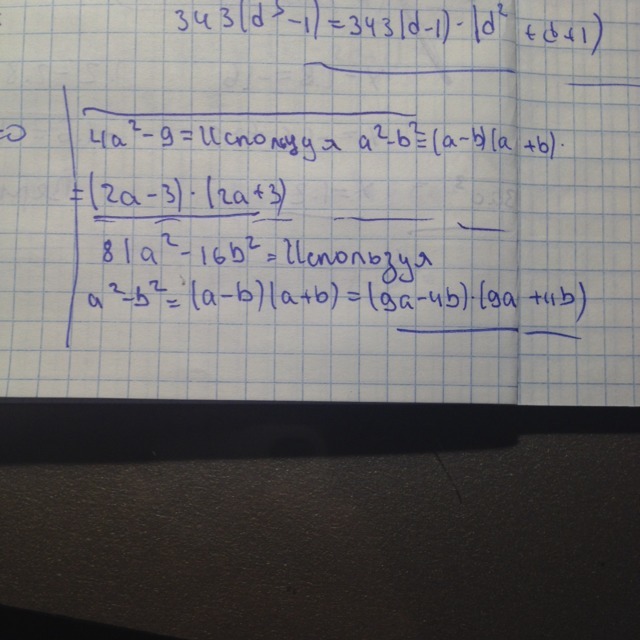 343(d³-1)=343(d-1)·(d²+d+1)
=0
4a²-9=Используя a²-b²=(a-b)(a+b).
=(2a-3)·(2a+3)
81a²-16b²=Используя
a²-b²=(a-b)(a+b)=(9a-4b)·(9a+4b)